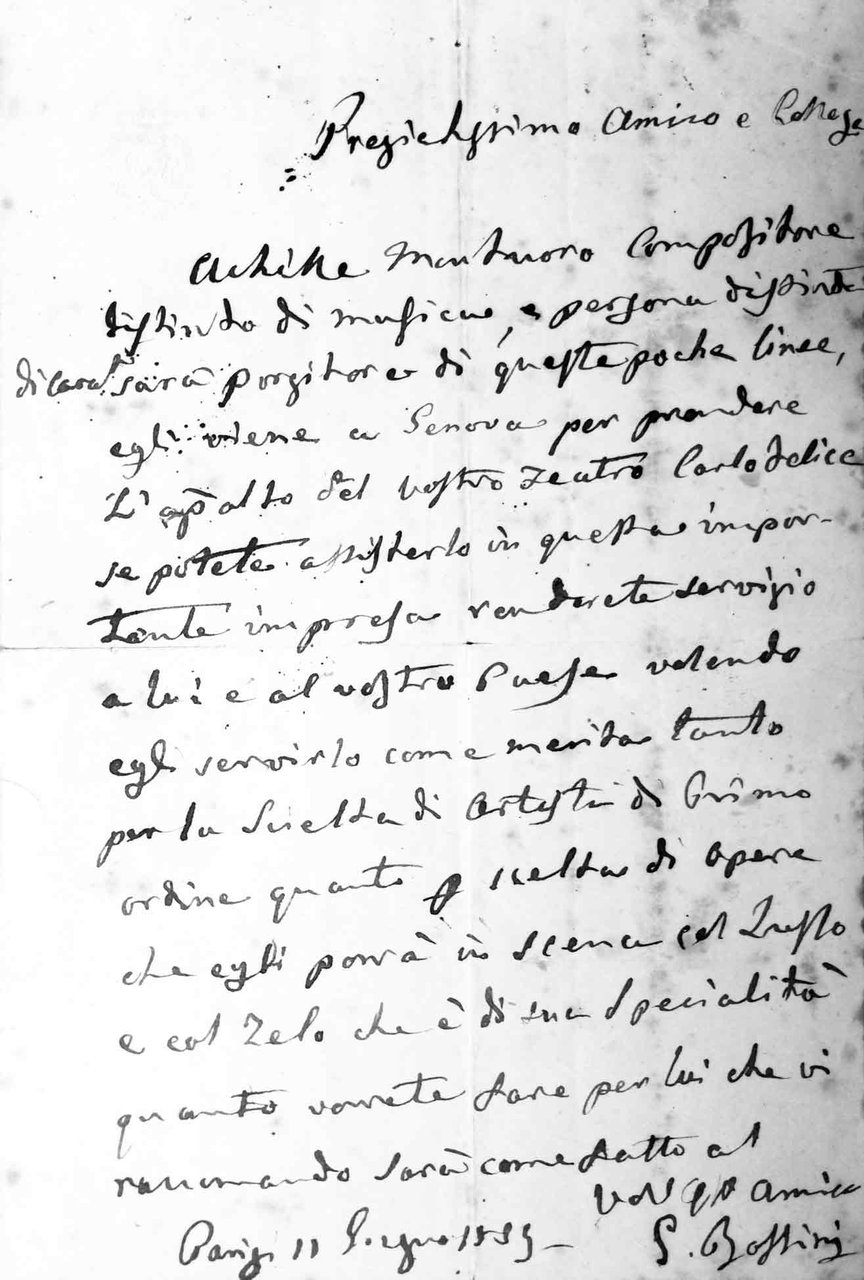 Pregiatissimo Amico e Collega
=
Achille Montuoro Compositore
distinto di musica, e persona distinta
di cara.e sarà porgitore di queste poche linee,
egli viene a Genova per prendere
L'apalto del vostro Teatro Carlo Felice
se potete assisterlo in questa impor-
tante impresa renderete servigio
a lui e al vostro Paese volendo
egli servirlo come merita tanto
per la Scielta di Artisti di Primo
ordine quanto p scielta di opere
che egli porrà in scena col Lusso
e col Zelo che è di sua Specialità
quanto vorrete fare per lui che vi
raccomando sarà come fatto al
Amico
Parigi 11 Giugno
G. Rossini